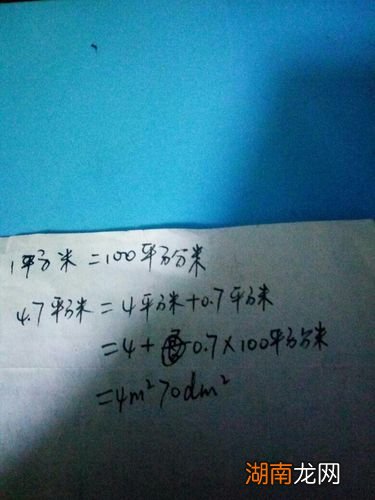 1平方米=100平方分米
4.7平方米=4平方米+0.7平方米
=4+0.7×100平方分米
=4m²70dm²
湖南龙网